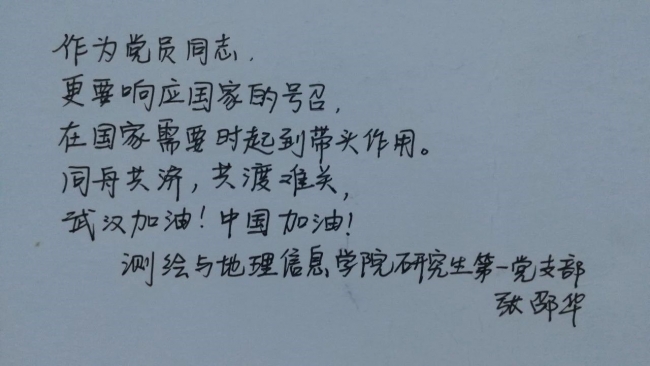 作为党员同志,
更要响应国家的号召,
在国家需要时起到带头作用。
同舟共济，共渡难关,
武汉加油！中国加油！
测绘与地理信息学院研究生第一党支部
张邵华